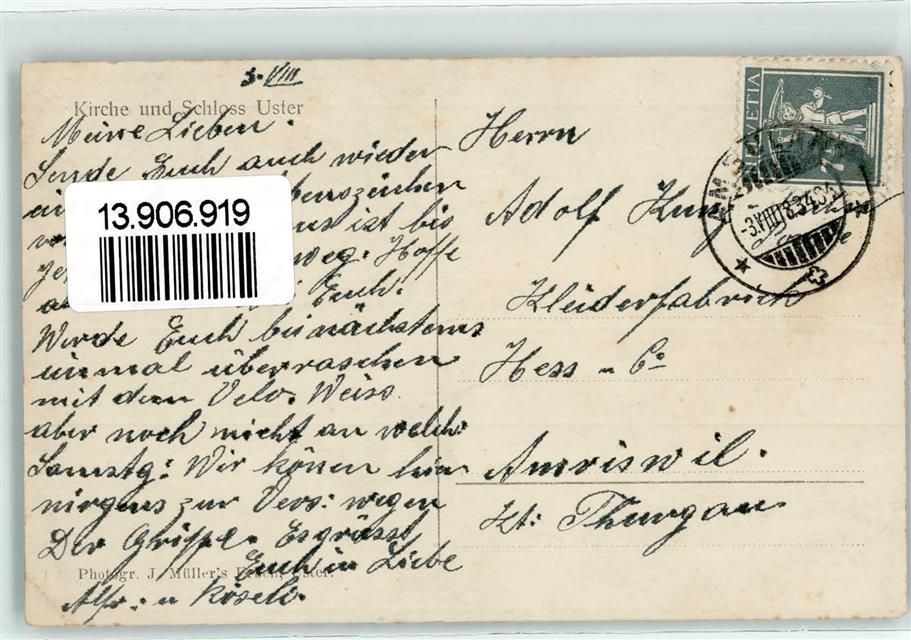 3. VIII
Kirche und Schloss Uster
Meine Lieben.
Sende Euch auch wieder
ein
ist bis
weg: Hoffe
Euch.
13.906.919
Werde Euch bei nächstens
einmal überraschen
mit dem Velo. Weiss
aber noch nicht an welch:
Samstg: Wir könen hin
nirgens zur Vers: wegen
Der Grippe. Es grüsst
Euch in Liebe
Photogr. J. Müller's Uster.
Alfr: u Röseli.
Herrn
Adolf
Kleiderfabrick
Hess u Co
Amriswil.
Kt: Thurgau
HELVETIA
-3.VIII.18.